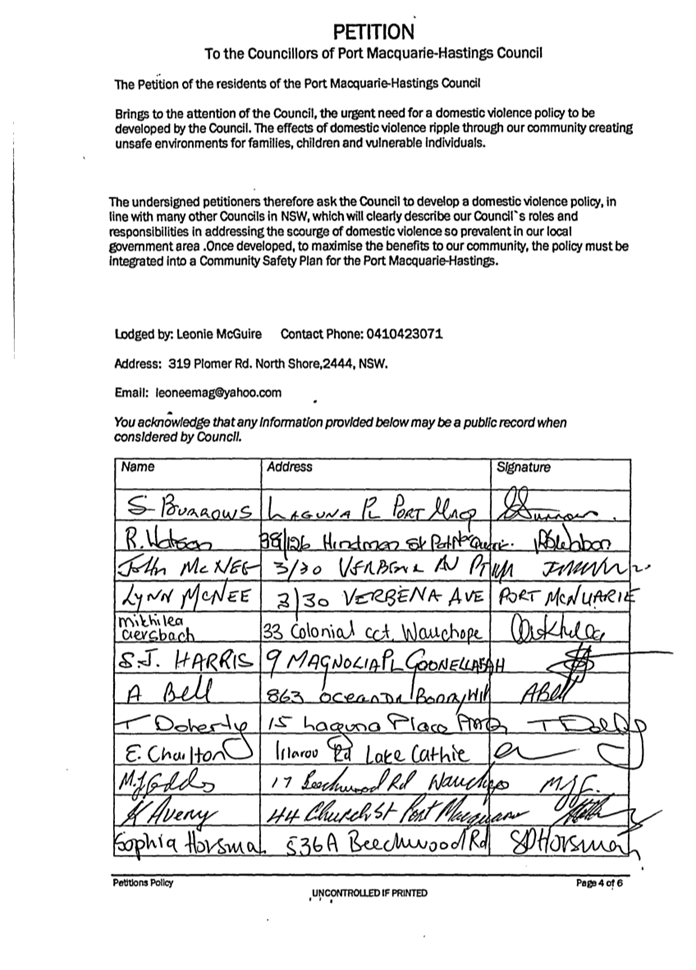 PETITION
To the Councillors of Port Macquarie-Hastings Council
The Petition of the residents of the Port Macquarie-Hastings Council
Brings to the attention of the Council, the urgent need for a domestic violence policy to be
developed by the Council. The effects of domestic violence ripple through our community creating
unsafe environments for families, children and vulnerable individuals.
The undersigned petitioners therefore ask the Council to develop a domestic violence policy, in
line with many other Councils in NSW, which will clearly describe our Council`s roles and
responsibilities in addressing the scourge of domestic violence so prevalent in our local
government area .Once developed, to maximise the benefits to our community, the policy must be
integrated into a Community Safety Plan for the Port Macquarie-Hastings.
Lodged by: Leonie McGuire Contact Phone: 0410423071
Address: 319 Plomer Rd. North Shore,2444, NSW.
Email: leoneemag@yahoo.com
You acknowledge that any information provided below may be a public record when
considered by Council.
Name Address Signature
S BURROWS LAGUNA PL PORT MACQ
R. Watson Hindman St
John McNEE 3/30 VERBENA AV
LYNN MCNEE 3/30 VERBENA AVE PORT MCNUARIE
mikhilea
aersbach 33 Colonial cct, Wauchope
S.J. HARRIS 9 MAGNOLIA PL GOONELLABAH
A Bell 863 OCEAN DR ABell
T Doherty 15 Laguna Place PMQ
E. Charlton Rd Lake Cathie
17 Beechwood Rd Wauchope
K Avery 44 Church St Port Macquarie
Sophia Horsma 536A Beechwood Rd SDHorsman
Petitions Policy Page 4 of 6
UNCONTROLLED IF PRINTED